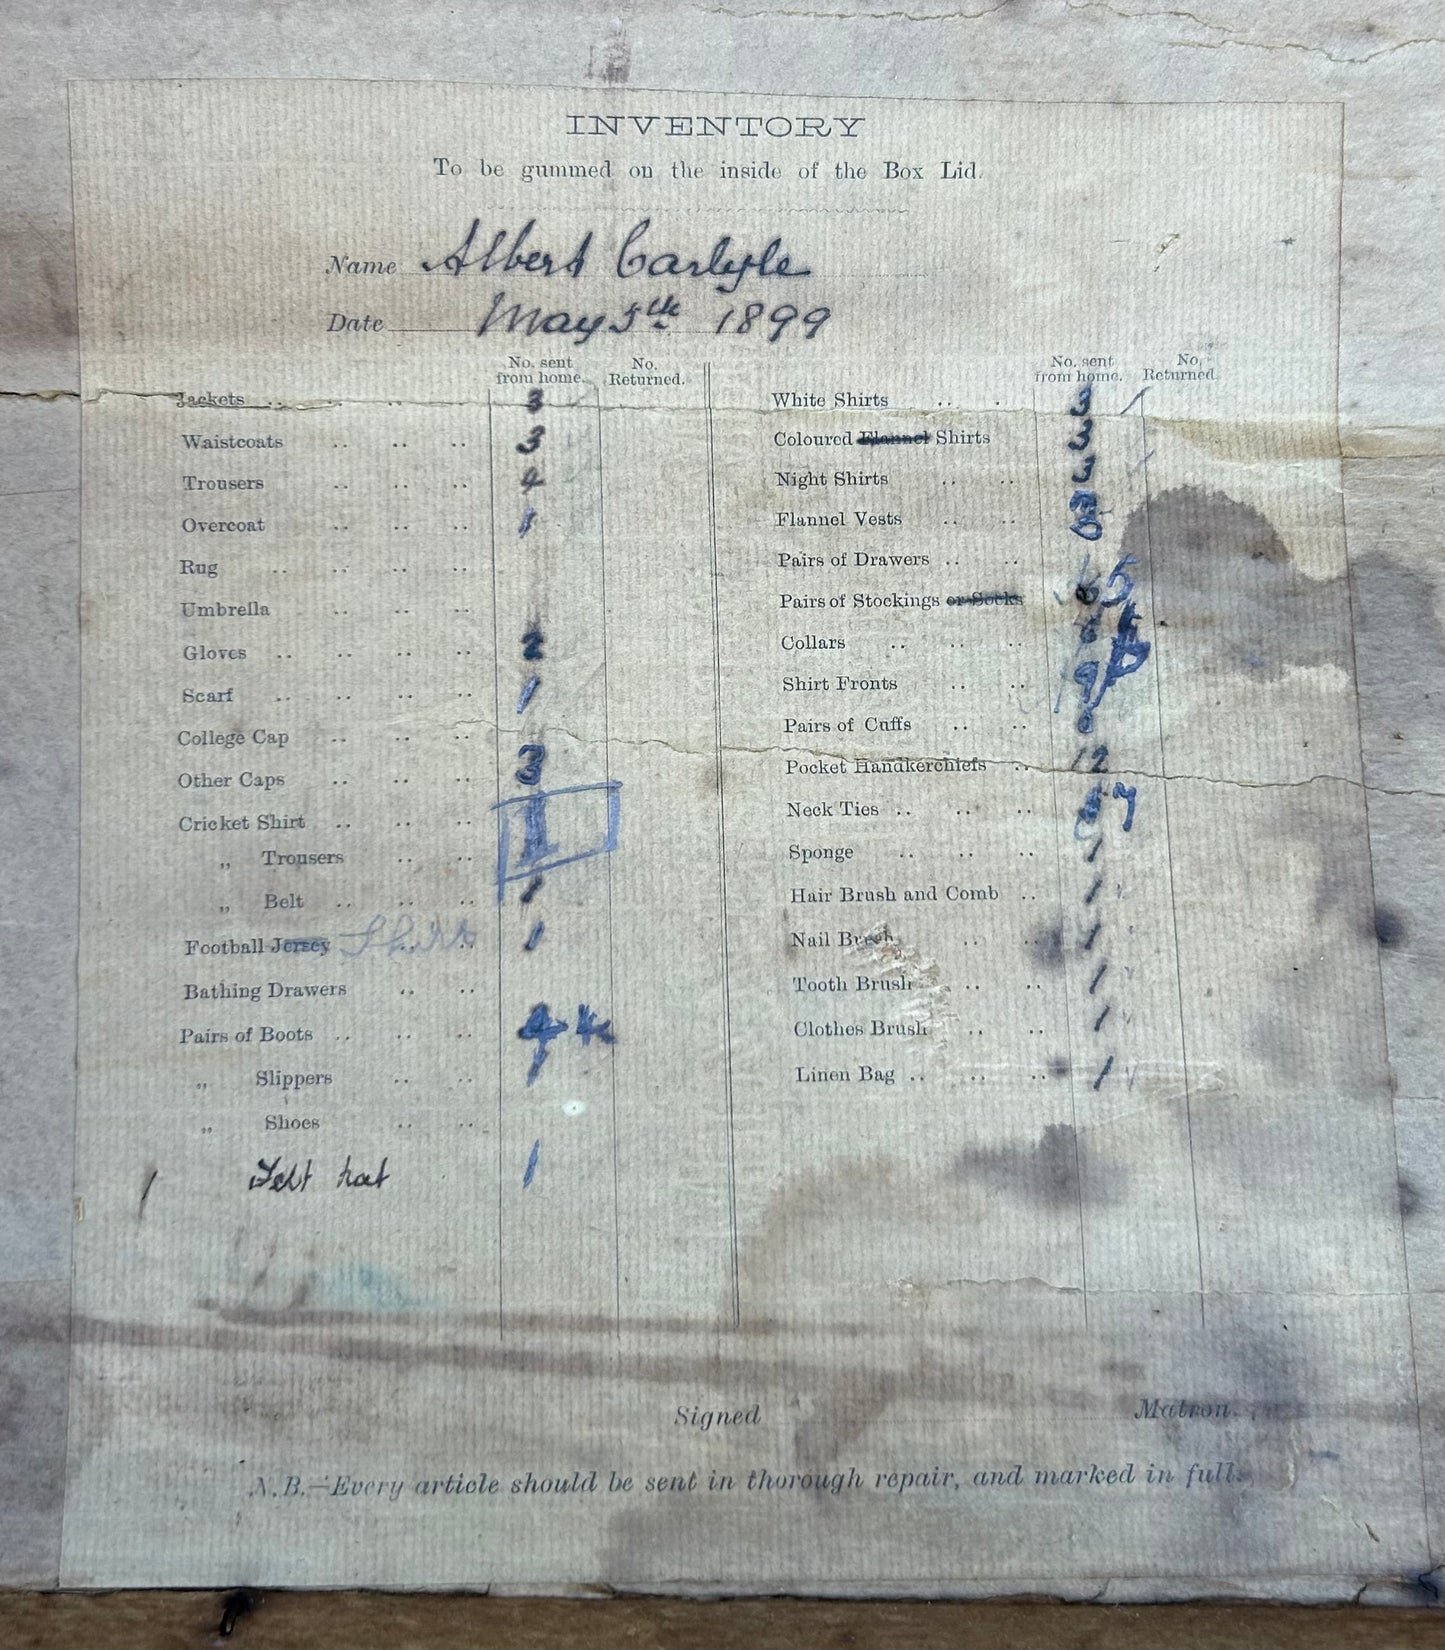 INVENTORY
To be gummed on the inside of the Box Lid.
Name Albert Carlyle
Date May 5th 1899
No. sent from home. No. Returned.
Jackets .. .. .. 3
Waistcoats .. .. .. 3
Trousers .. .. .. 4
Overcoat .. .. .. 1
Rug .. .. .. ..
Umbrella .. .. ..
Gloves .. .. .. .. 2
Scarf .. .. .. .. 1
College Cap .. .. ..
Other Caps .. .. .. 3
Cricket Shirt .. .. .. 1
„ Trousers .. ..
„ Belt .. .. .. 1
Football Jersey Shirts 1
Bathing Drawers .. ..
Pairs of Boots .. .. .. 4 4
„ Slippers .. .. 1
„ Shoes .. ..
1 Felt hat 1
No. sent from home. No. Returned.
White Shirts .. .. 3
Coloured Flannel Shirts 3
Night Shirts .. .. 3
Flannel Vests .. ..
Pairs of Drawers .. ..
Pairs of Stockings or Socks 6 5
Collars .. .. ..
Shirt Fronts .. ..
Pairs of Cuffs .. ..
Pocket Handkerchiefs .. 12
Neck Ties .. .. .. 7
Sponge .. .. .. 1
Hair Brush and Comb .. 1
Nail Brush .. .. 1
Tooth Brush .. .. 1
Clothes Brush .. .. 1
Linen Bag .. .. .. 1
Signed Matron.
N.B.—Every article should be sent in thorough repair, and marked in full.